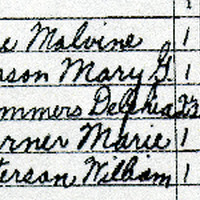 e Malvine 1
rson Mary G 1
mmers Delphia 23
rner Marie 1
terson William 1